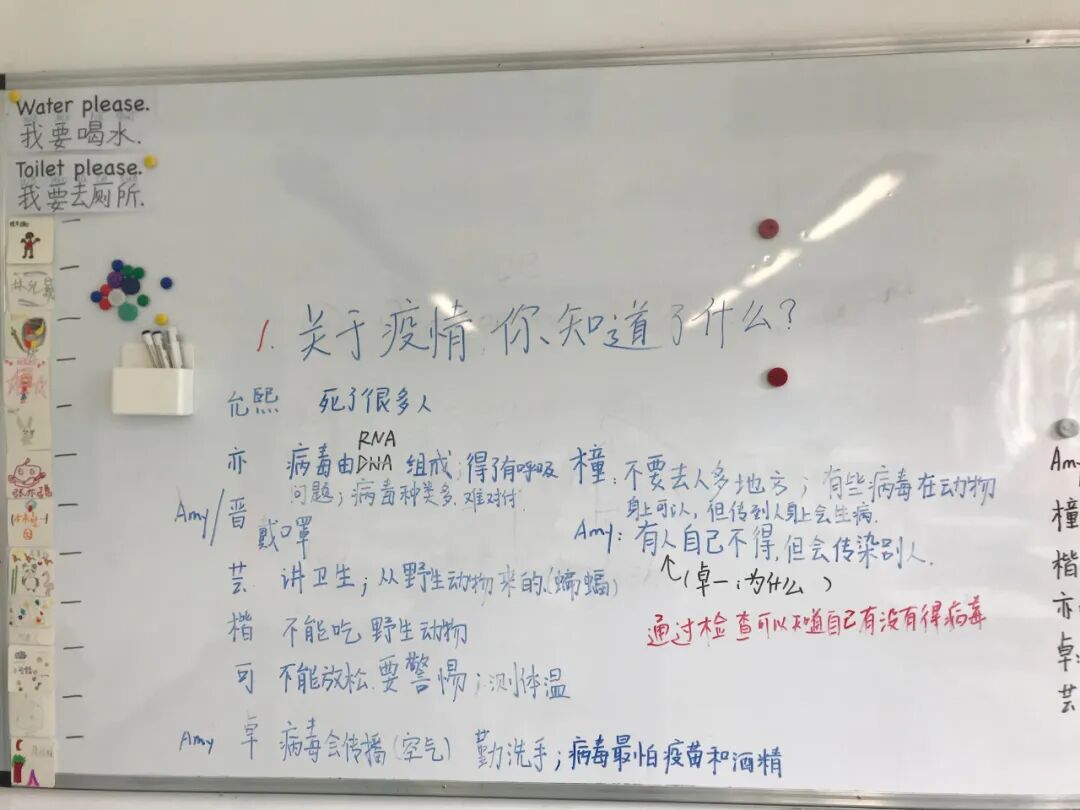 Water please.
我要喝水.
Toilet please.
我要去厕所.
1. 关于疫情,你知道了什么?
允熙 死了很多人
亦 病毒由DNA组成;得了有呼吸
RNA
问题;病毒种类多.难对付.
Amy/晋 戴口罩
芸 讲卫生;从野生动物来的.(蝙蝠)
楷 不能吃野生动物
可 不能放松.要警惕;测体温
Amy 卓 病毒会传播(空气) 勤洗手;病毒最怕疫苗和酒精
橦:不要去人多地方;有些病毒在动物
身上可以,但传到人身上会生病.
Amy:有人自己不得,但会传染别人.
↑(卓一:为什么 )
通过检查可以知道自己有没有得病毒
Amy
橦
楷
亦
卓
芸